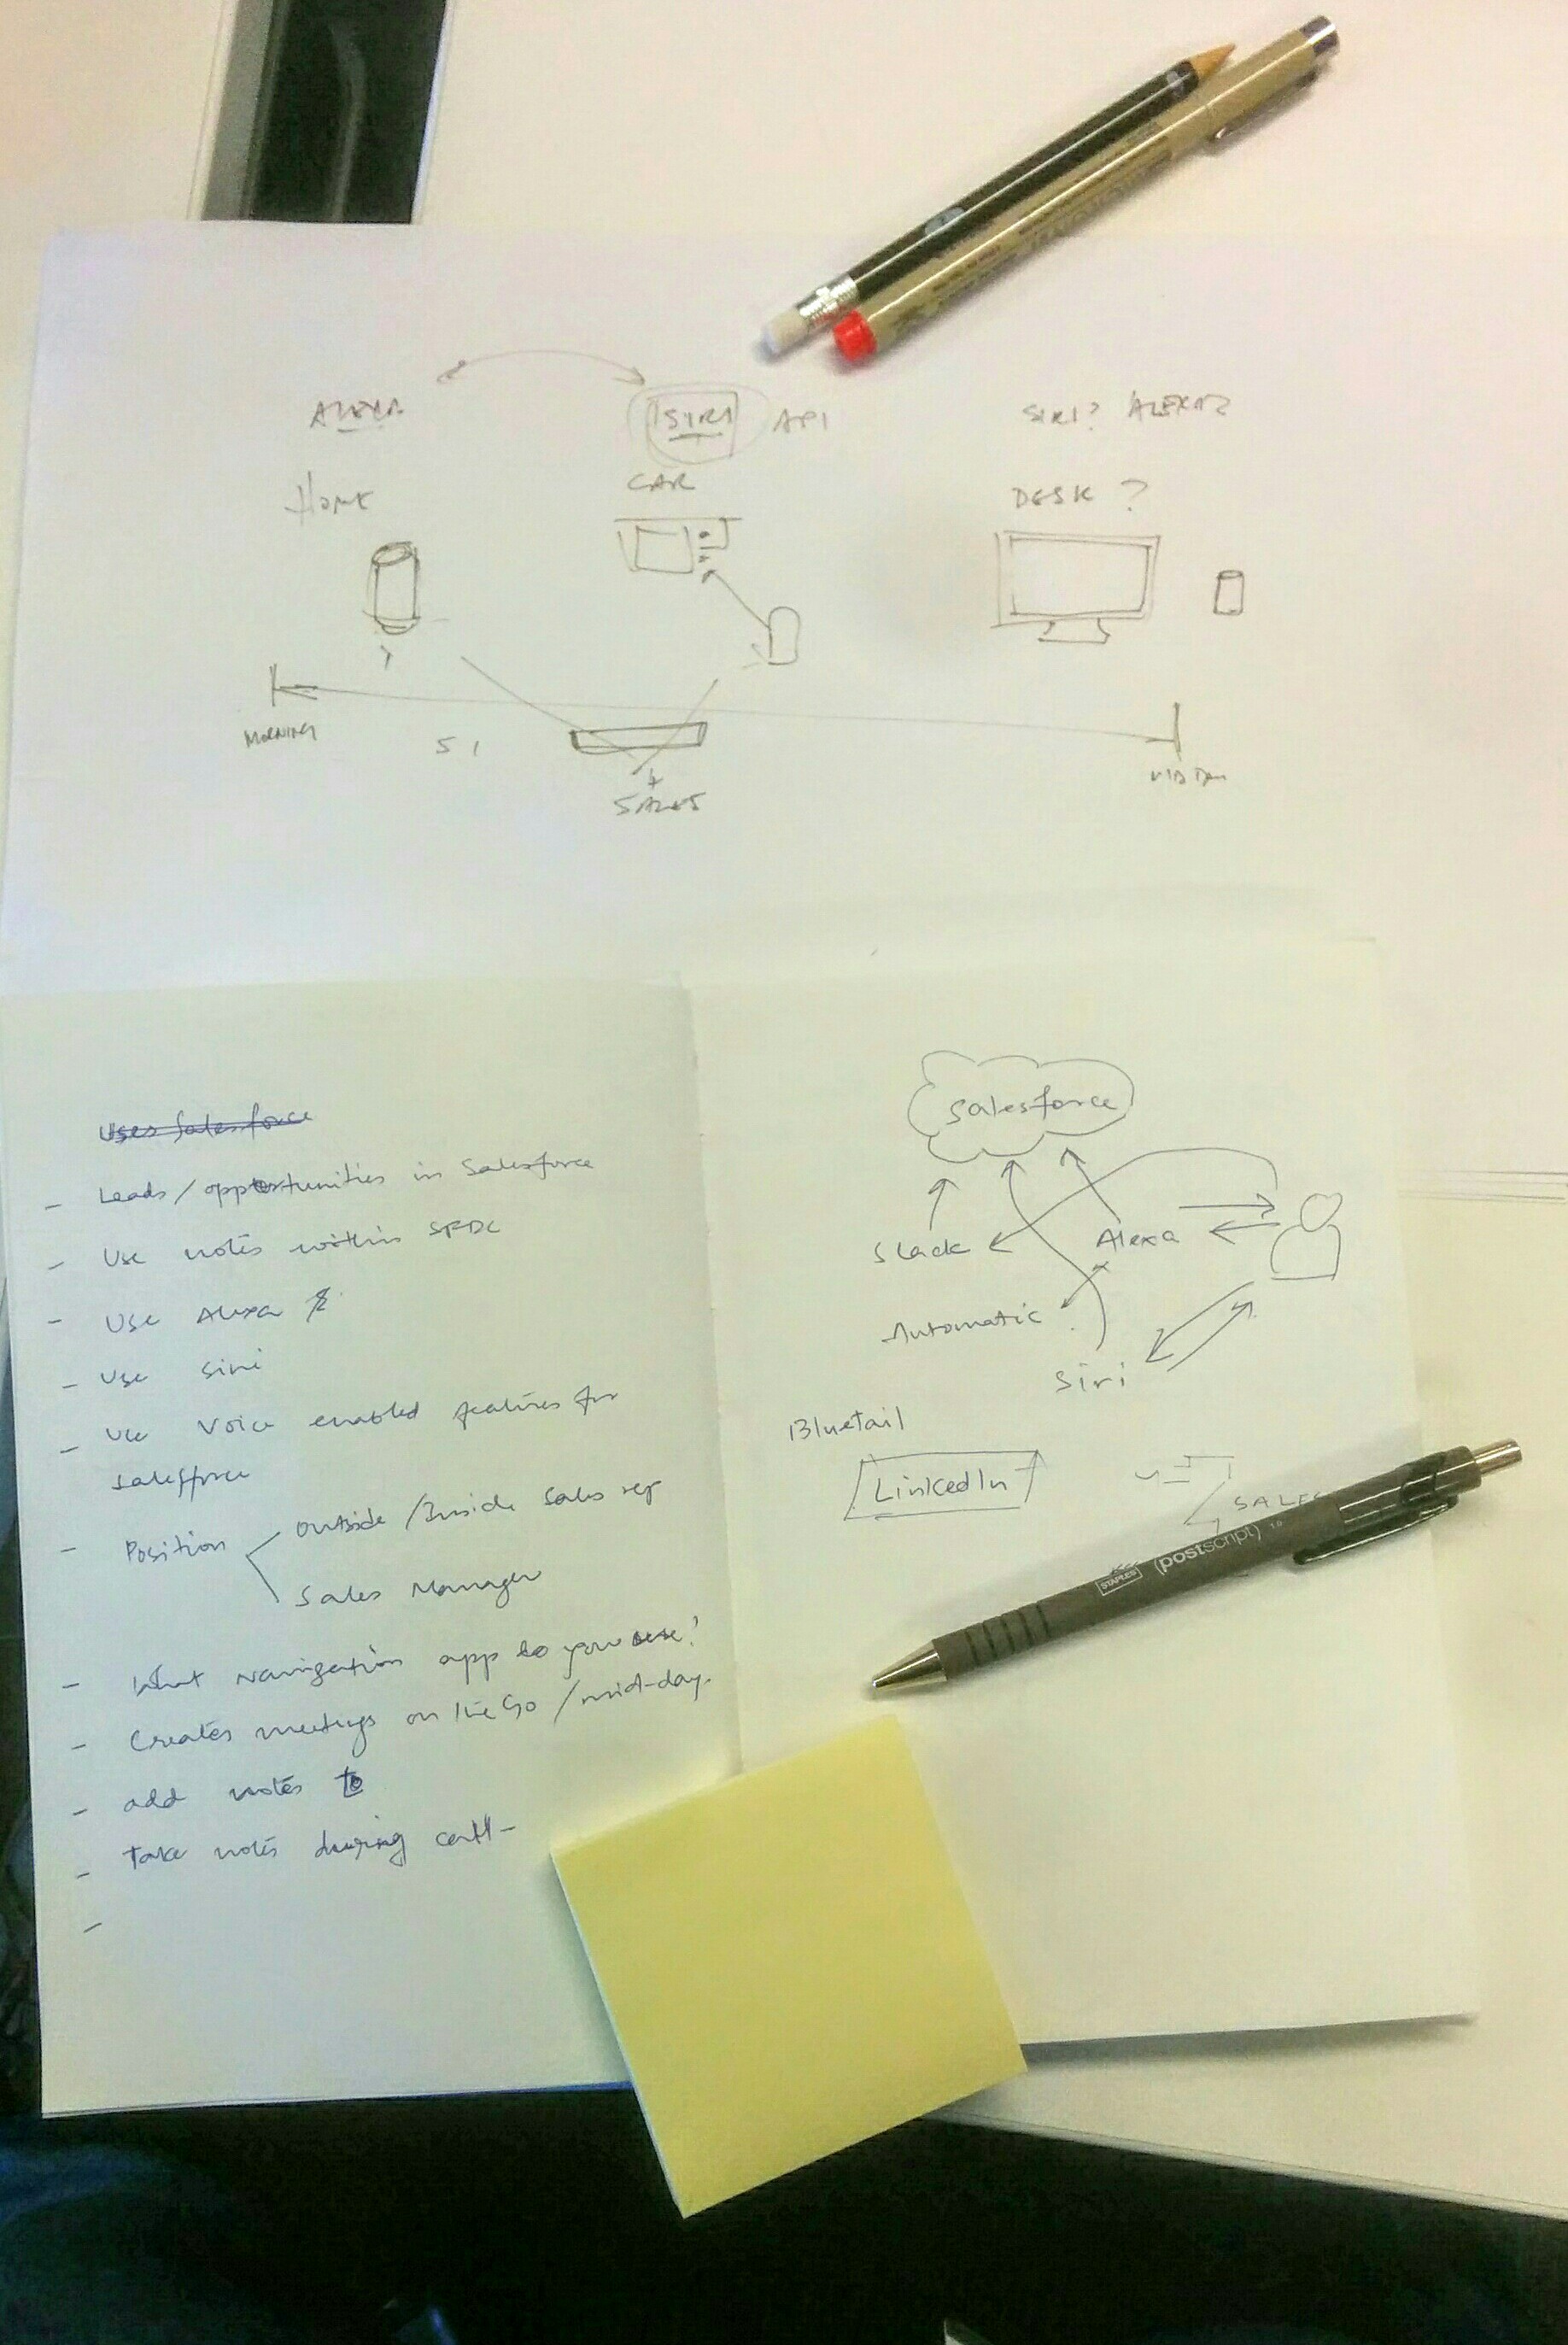 ALEXA
SIRI API
SIRI? ALEXA?
HOME
CAR
DESK ?
MORNING
S 1
SALES
MID DAY
Uses Salesforce
- Leads/opportunities in Salesforce
- Use notes within SFDC
- Use Alexa
- Use Siri
- Use Voice enabled features for
Salesforce
- Position
Outside /Inside Sales rep
Sales Manager
- What Navigation app to you use?
- Creates meetings on the Go /mid-day.
- add notes to
- Take notes during call-
-
Salesforce
Slack
Alexa
Automatic
Siri
Bluetail
LinkedIn
SALES
STAPLES (postscript) 1.0